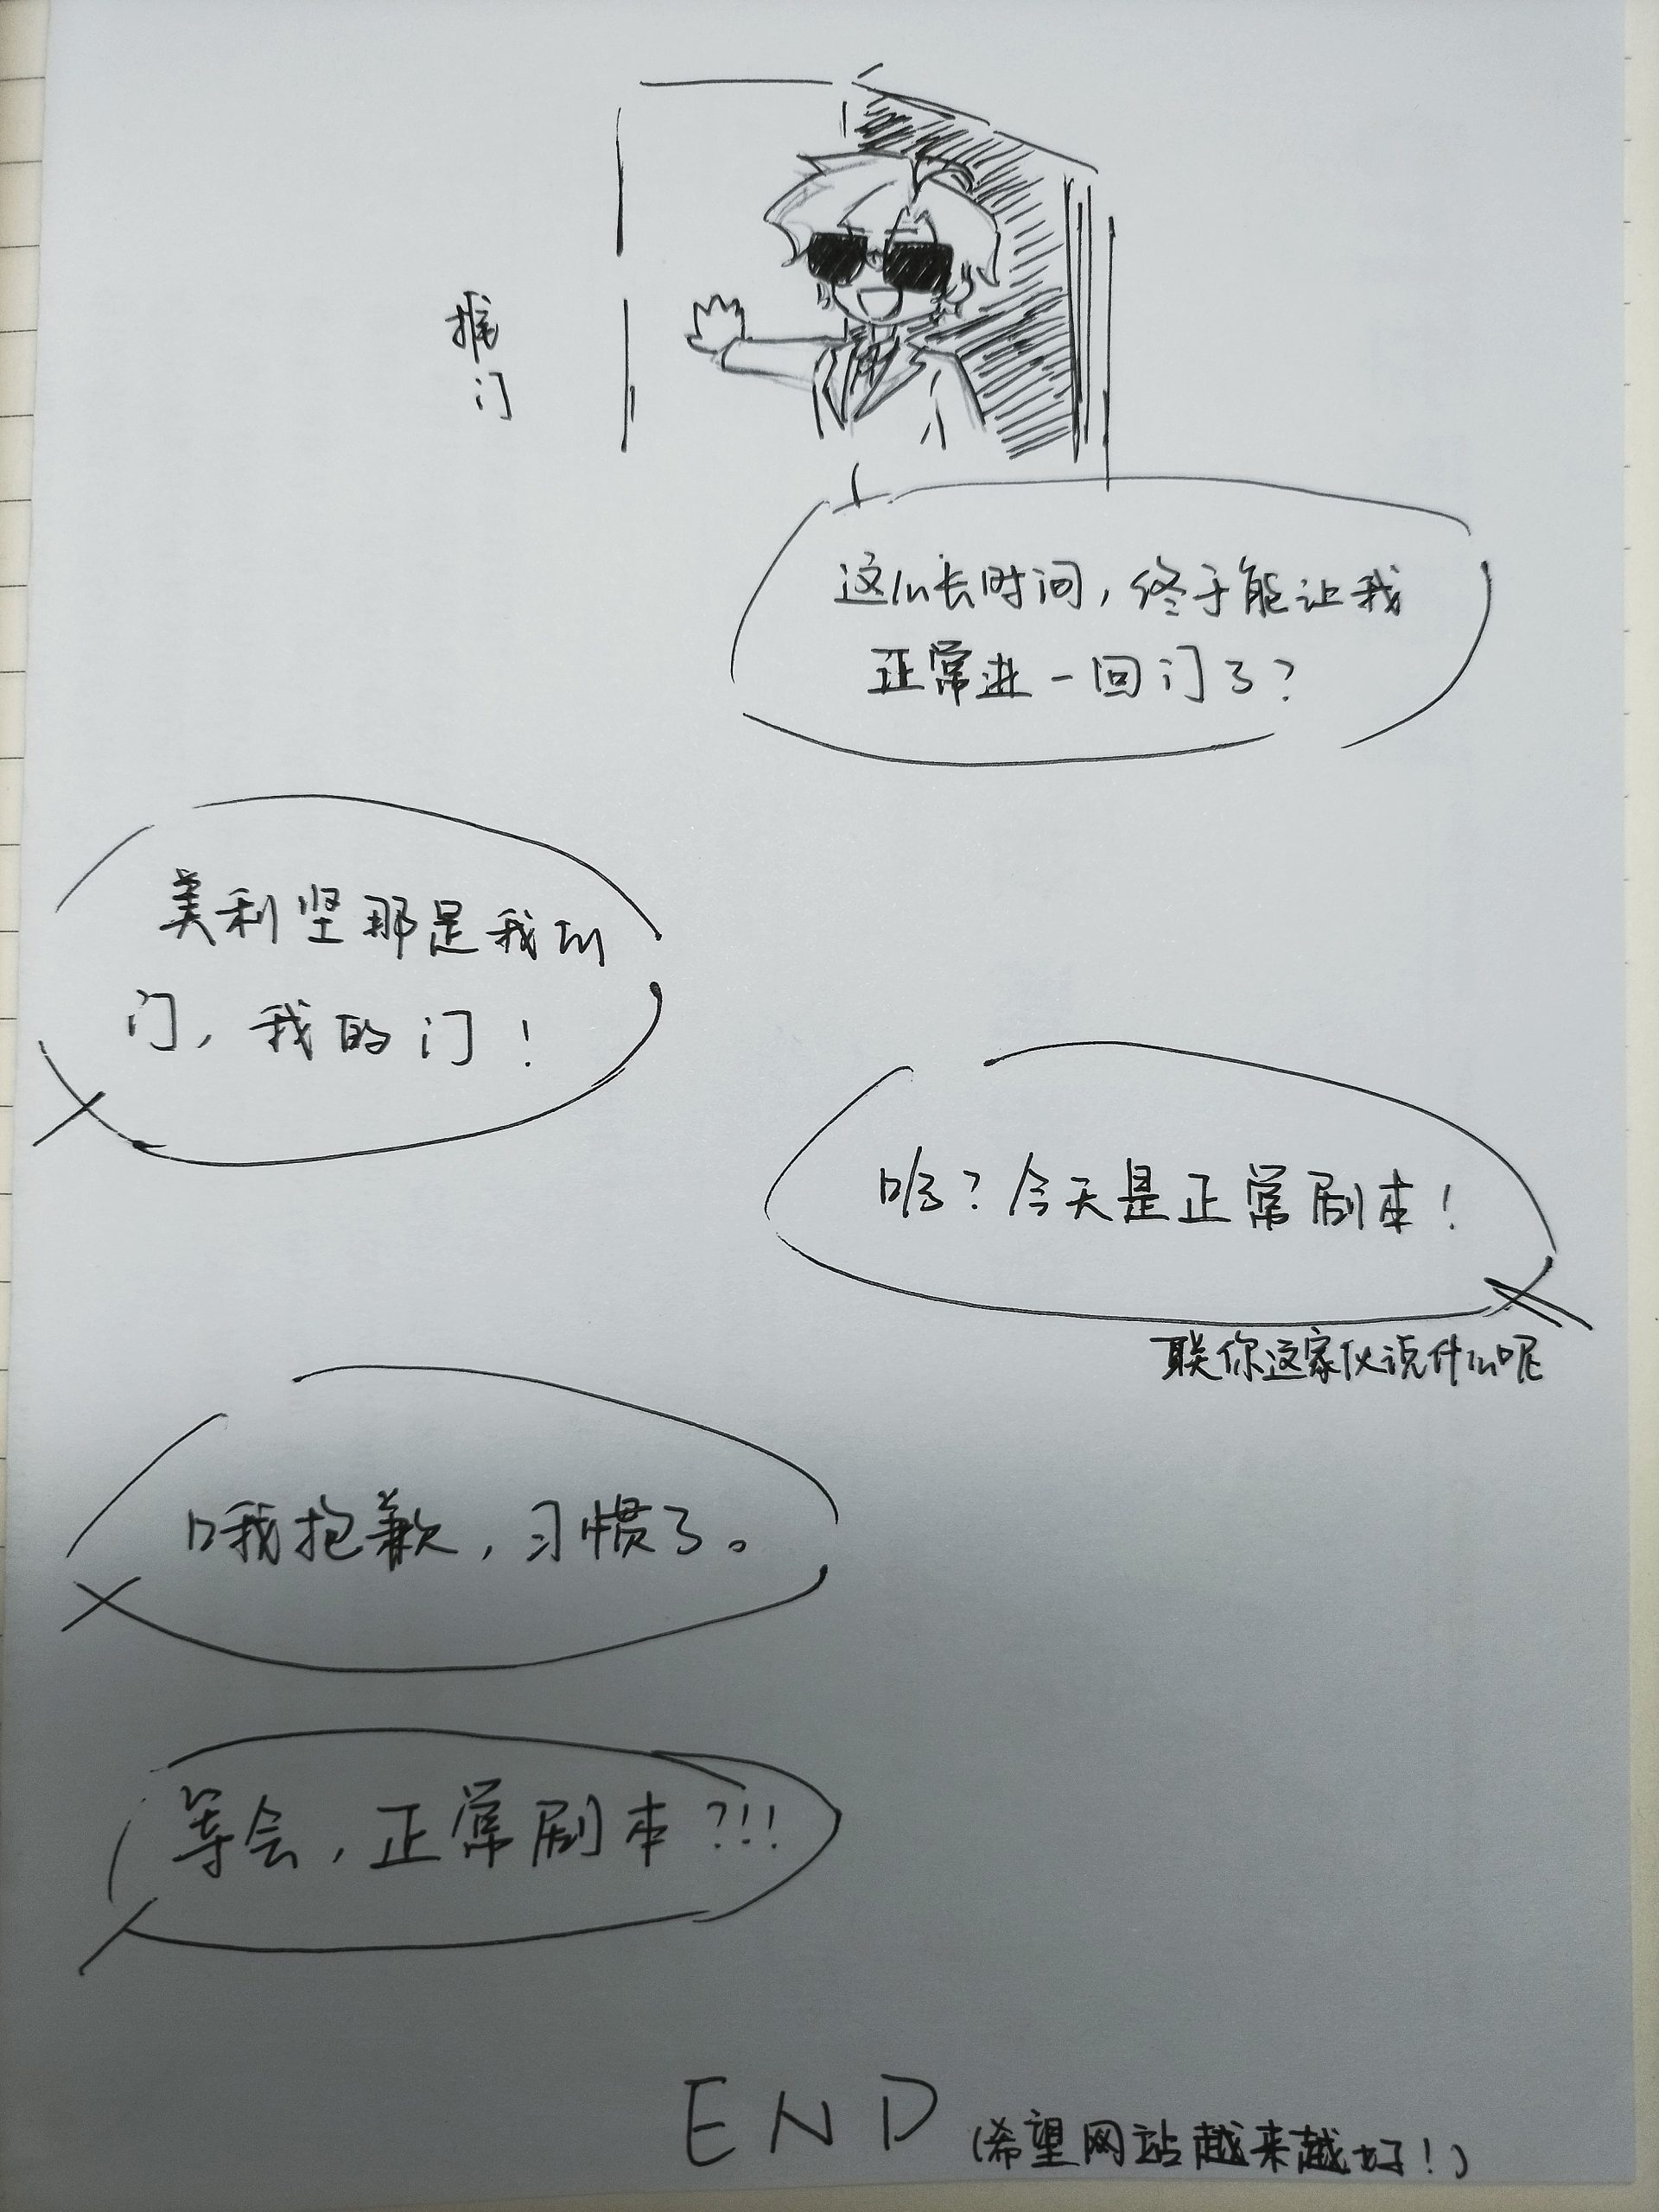 推门
这么长时间，终于能让我
正常进一回门了？
美利坚那是我的
门，我的门！
啊？今天是正常剧本！
联你这家伙说什么呢
哦我抱歉，习惯了。
等会，正常剧本？！！
END（希望网站越来越好！）